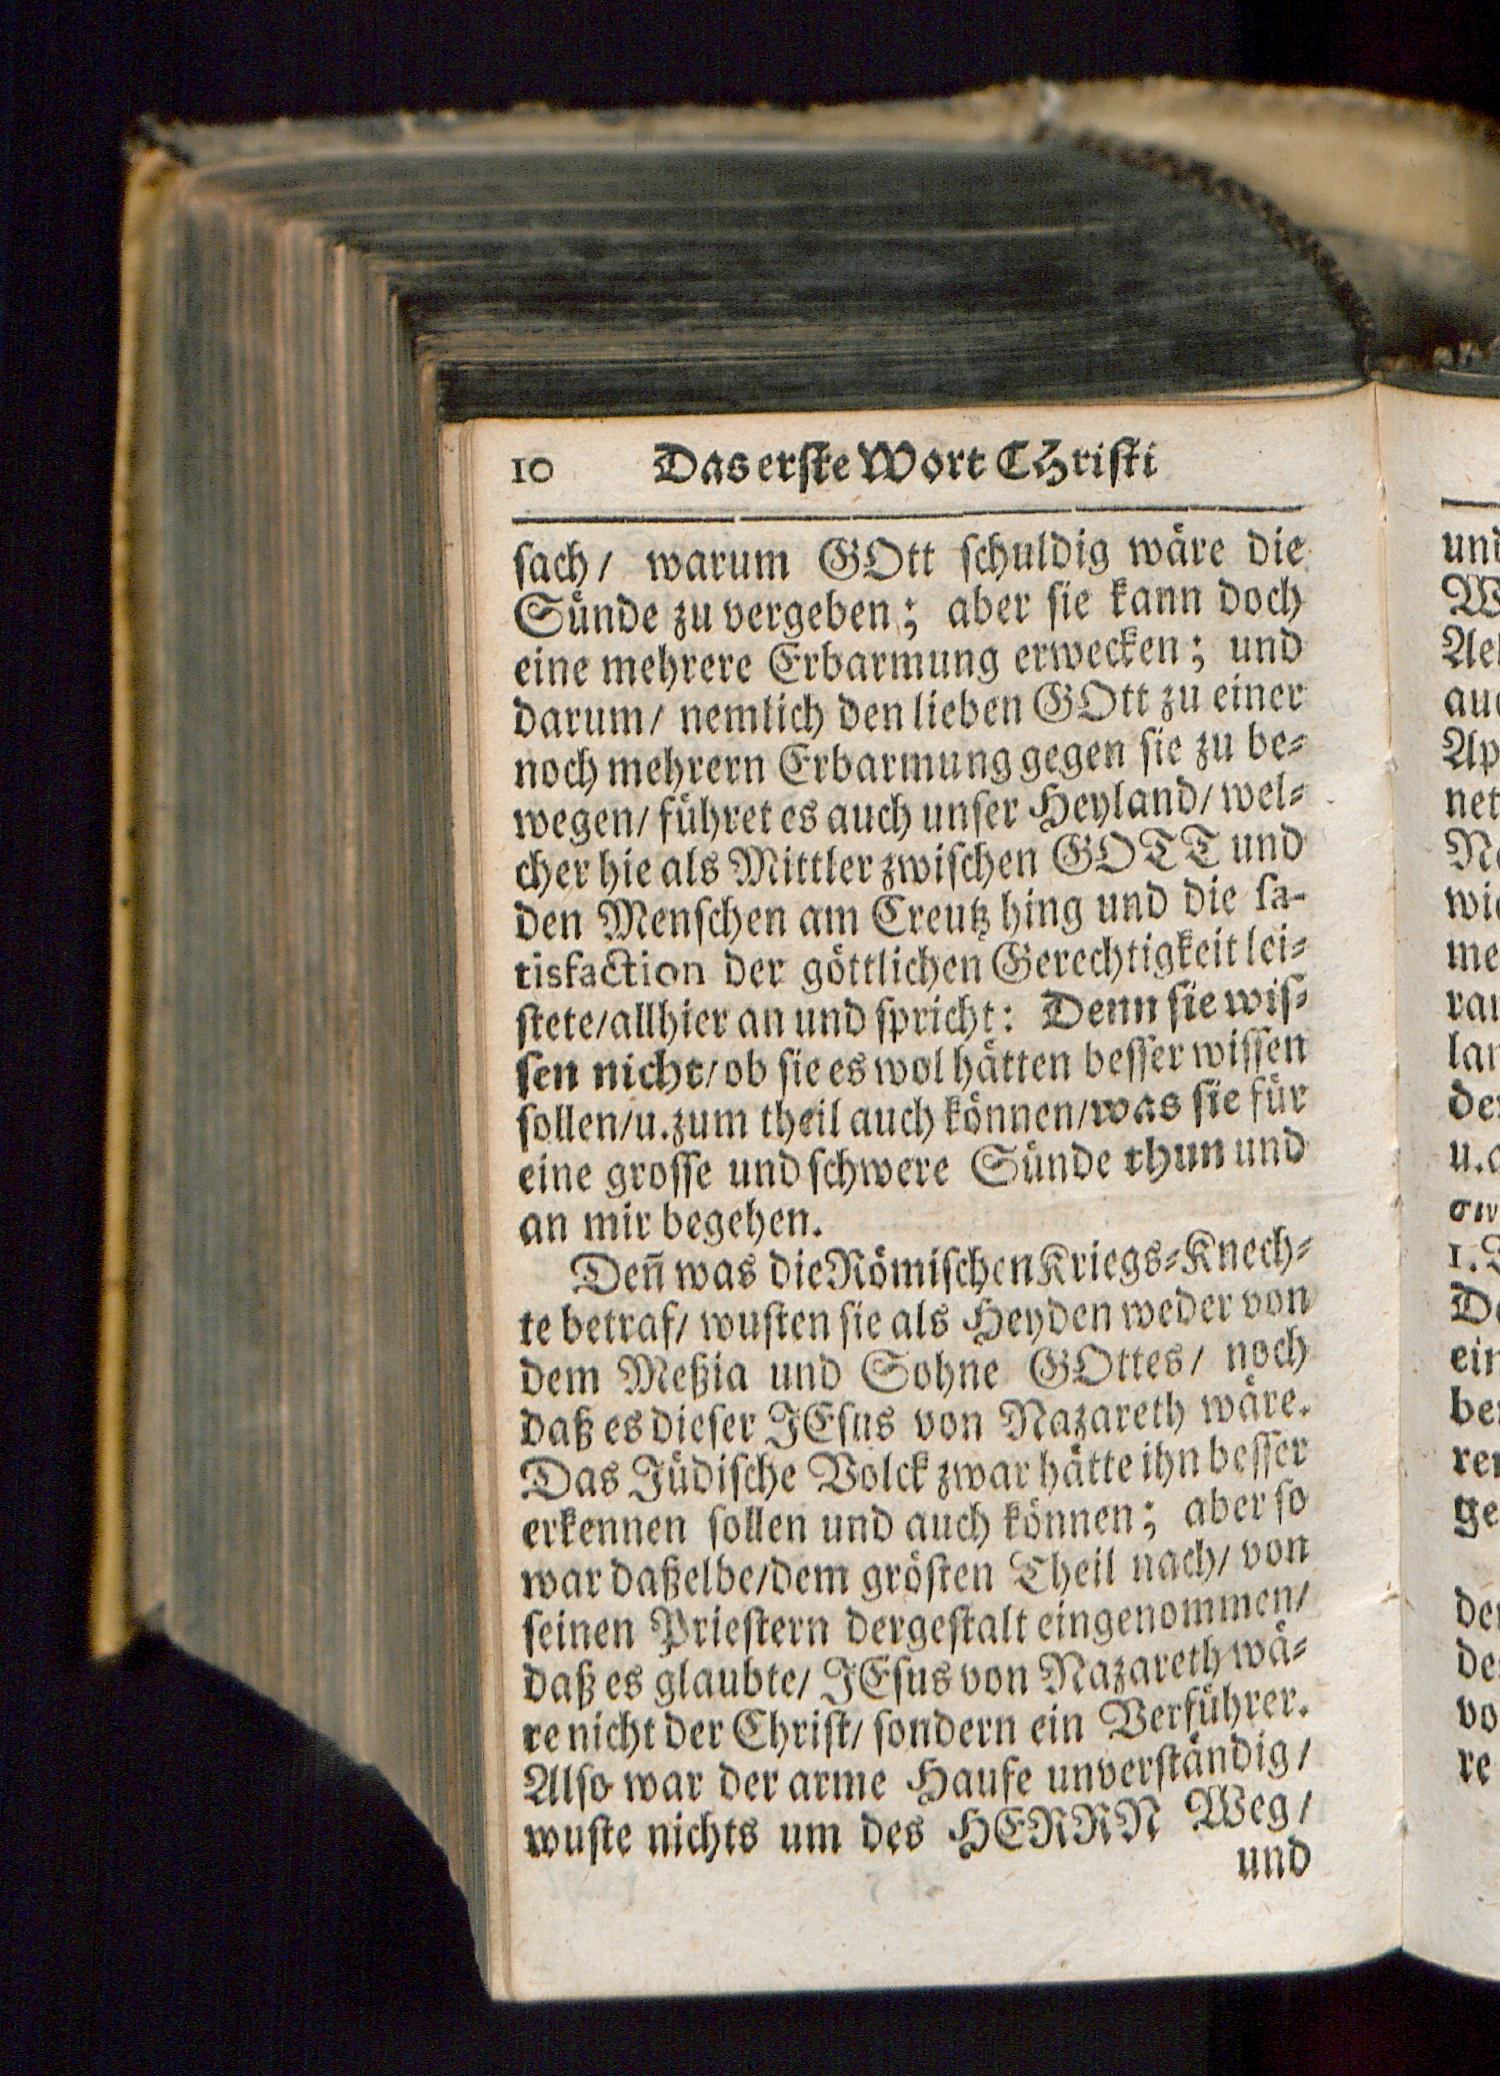 10 Das erste Wort CHristi
sach/ warum GOtt schuldig wäre die
Sünde zu vergeben; aber sie kann doch
eine mehrere Erbarmung erwecken; und
darum/ nemlich den lieben GOtt zu einer
noch mehrern Erbarmung gegen sie zu be-
wegen/ führet es auch unser Heyland/ wel-
cher hie als Mittler zwischen GOTT und
den Menschen am Creutz hing und die sa-
tisfaction der göttlichen Gerechtigkeit lei-
stete/ allhier an und spricht: Denn sie wis-
sen nicht/ ob sie es wol hätten besser wissen
sollen/ u. zum theil auch können/ was sie für
eine grosse und schwere Sünde thun und
an mir begehen.
Deñ was die Römischen Kriegs-Knech-
te betraf/ wusten sie als Heyden weder von
dem Meßia und Sohne GOttes/ noch
daß es dieser JEsus von Nazareth wäre.
Das Jüdische Volck zwar hätte ihn besser
erkennen sollen und auch können; aber so
war daßelbe/ dem grösten Theil nach/ von
seinen Priestern dergestalt eingenommen/
daß es glaubte/ JEsus von Nazareth wä-
re nicht der Christ/ sondern ein Verführer.
Also war der arme Haufe unverständig/
wuste nichts um des HERRN Weg/
und